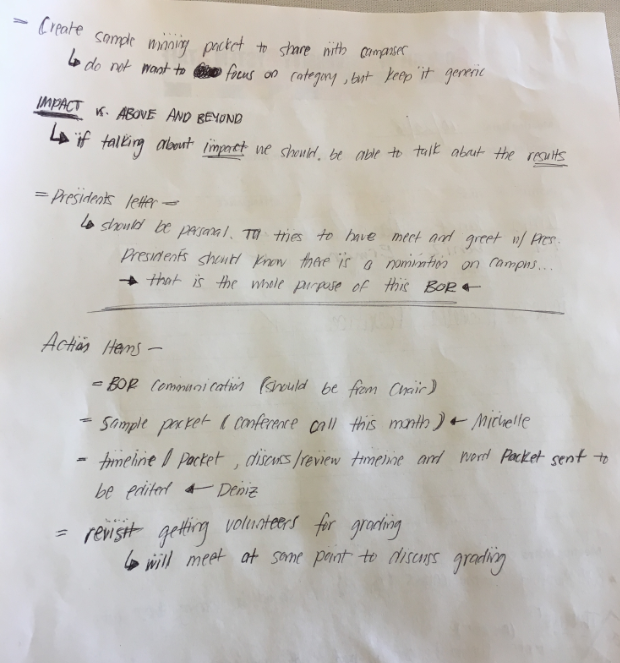 = Create sample winning packet to share with campuses
↳ do not want to focus on category, but keep it generic
IMPACT vs. ABOVE AND BEYOND
↳ if talking about impact we should, be able to talk about the results
= Presidents letter -
↳ should be personal. tries to have meet and greet w/ Pres.
Presidents should know there is a nomination on campus...
→ that is the whole purpose of this BOR ←
Action Items -
= BOR Communication (should be from Chair)
= Sample packet (conference call this month) ← Michelle
= timeline / packet, discuss/review timeline and word Packet sent to
be edited ← Deniz
= revisit getting volunteers for grading
↳ will meet at some point to discuss grading